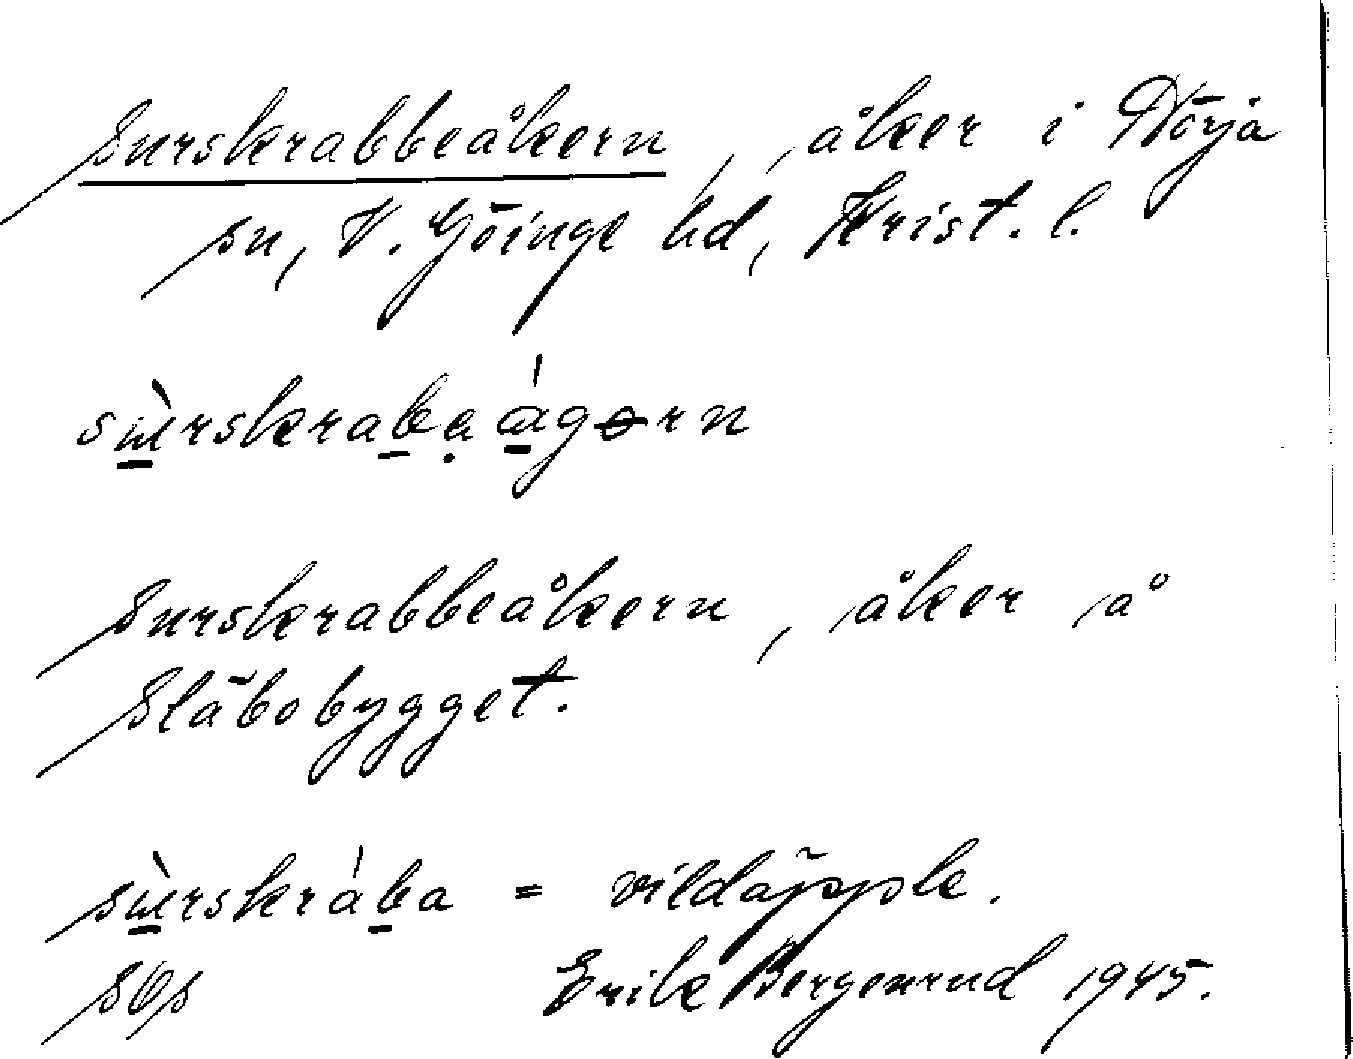 Surskrabbeåkern, åker i Nörja
sn, V. Göinge hd, Krist. l.
sùrskrabaágərn
Surskrabbeåkern, åker å
Släbobygget.
sùrskrába = vildäpple.
Erik Bergenrud 1945.